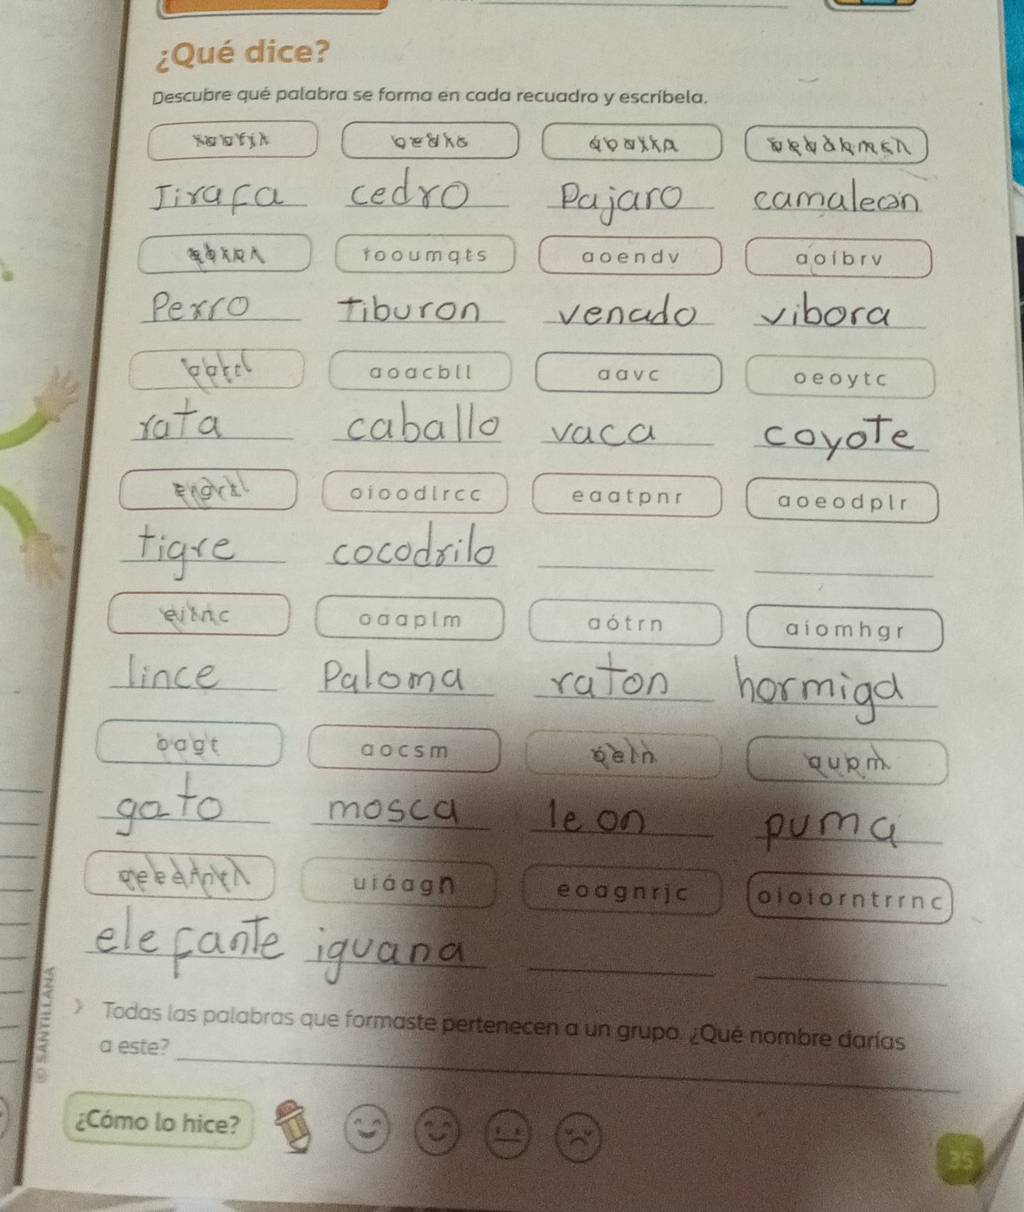 ¿Qué dice?
Descubre qué palabra se forma en cada recuadro y escríbela.
Jirafa cedro Pajaro camaleon
tooumqts aoendv aoibrv
Perro tiburon venado vibora
aoacbll aavc oeoytc
rata caballo vaca coyote
oioodlrcc eaatpnr aoeodplr
tigre cocodrilo
oaaplm aótrn aiomhgr
lince Paloma raton hormiga
oagt aocsm
gato mosca leon puma
uiáagn eoagnrjc oioiorntrrnc
elefante iguana
› Todas las palabras que formaste pertenecen a un grupo. ¿Qué nombre darías
a este?
© SANTILLANA
¿Cómo lo hice?
35